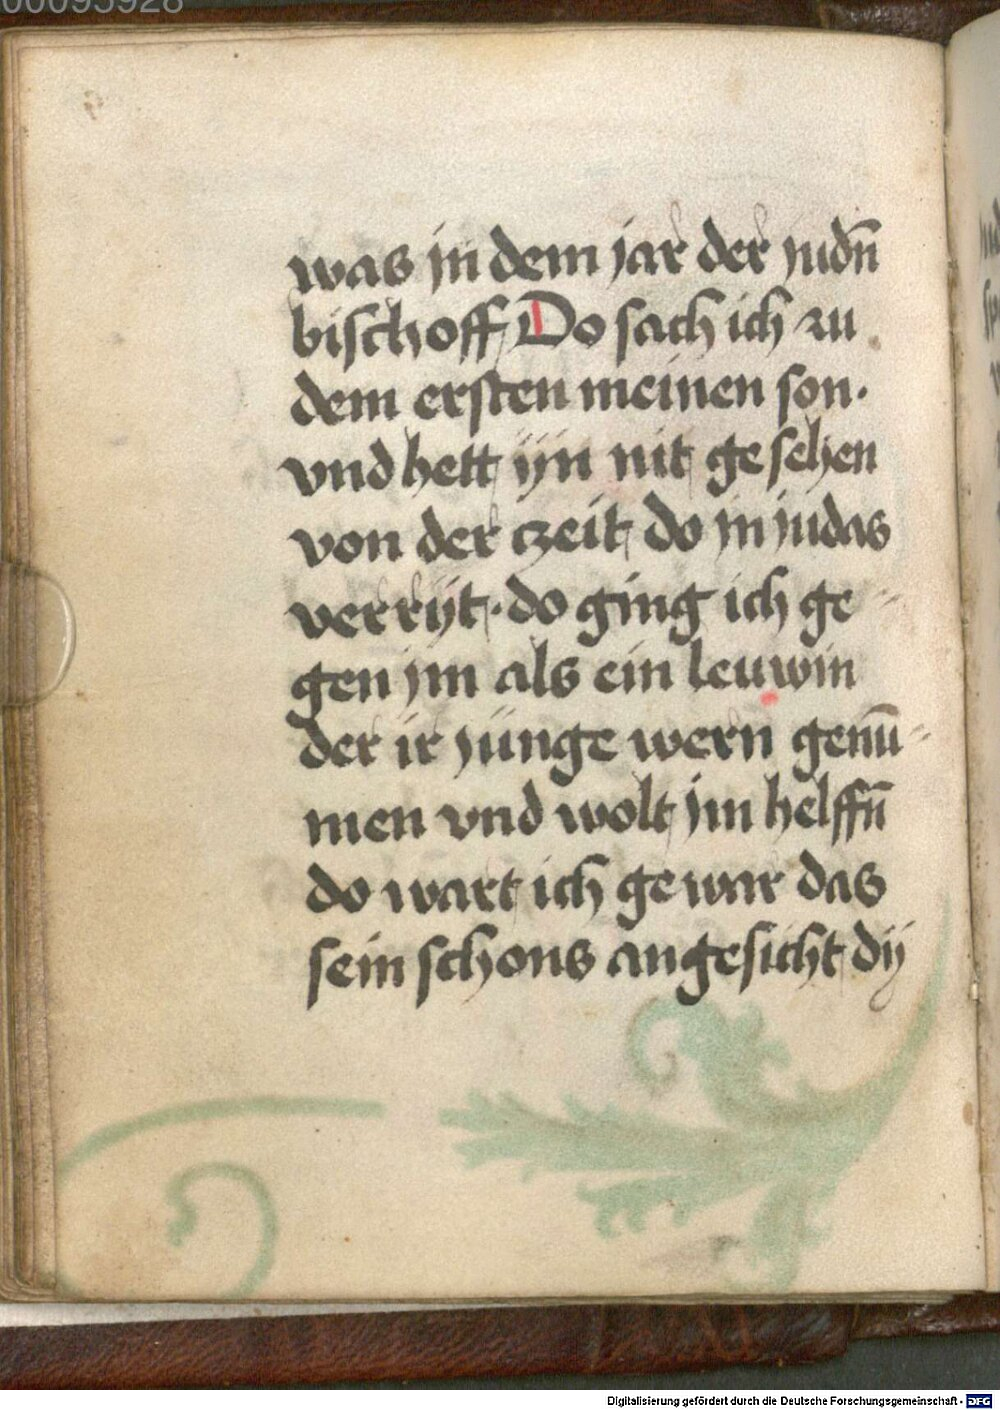 00095928
was in dem jar der judn̄
bischoff Do sach ich zu
dem ersten meinen son·
vnd hett ijn nit gesehen
von der czeit do in judas
verrijt· do ging ich ge-
gen jm als ein leuwin
der ir junge wern genū-
men vnd wolt jm helffn̄
do wart ich gewar das
sein schons angesicht dij
Digitalisierung gefördert durch die Deutsche Forschungsgemeinschaft - DFG